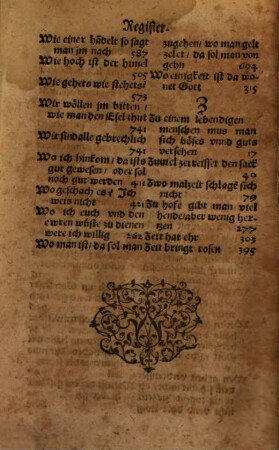 Register.
Wie einer hãdelt so sagt
man jm nach 587
Wie hoch ist der himel
505
Wie gehets wie stehets/
573
Wir wöllen jm bitten/
wie man den Esel thut
741
Wir sind alle gebrechlich
741
Wo ich hinkom/ da ists
gut gewesen/ oder sol
noch gut werden 411
Wo geschach es? Ich
weis nicht 421
Wo ich euch vnd den
ewren wüste zu dienen
were ich willig 262
Wo man ist/ da sol man
zugehen/ wo man gelt
zelet/ da sol man von
gehn 694
Wo einigkeit ist da wo-
net Gott 315
Z
Zu einem lebendigen
menschen mus man
sich böses vnnd guts
versehen 17
Zuuiel zerreisset den sack
40
Zwo malzeit schlagẽ sich
nicht 79
Zu hofe gibt man viel
hende/ aber wenig her-
tzen 277
Zeit hat ehr 303
Zeit bringt rosen 395